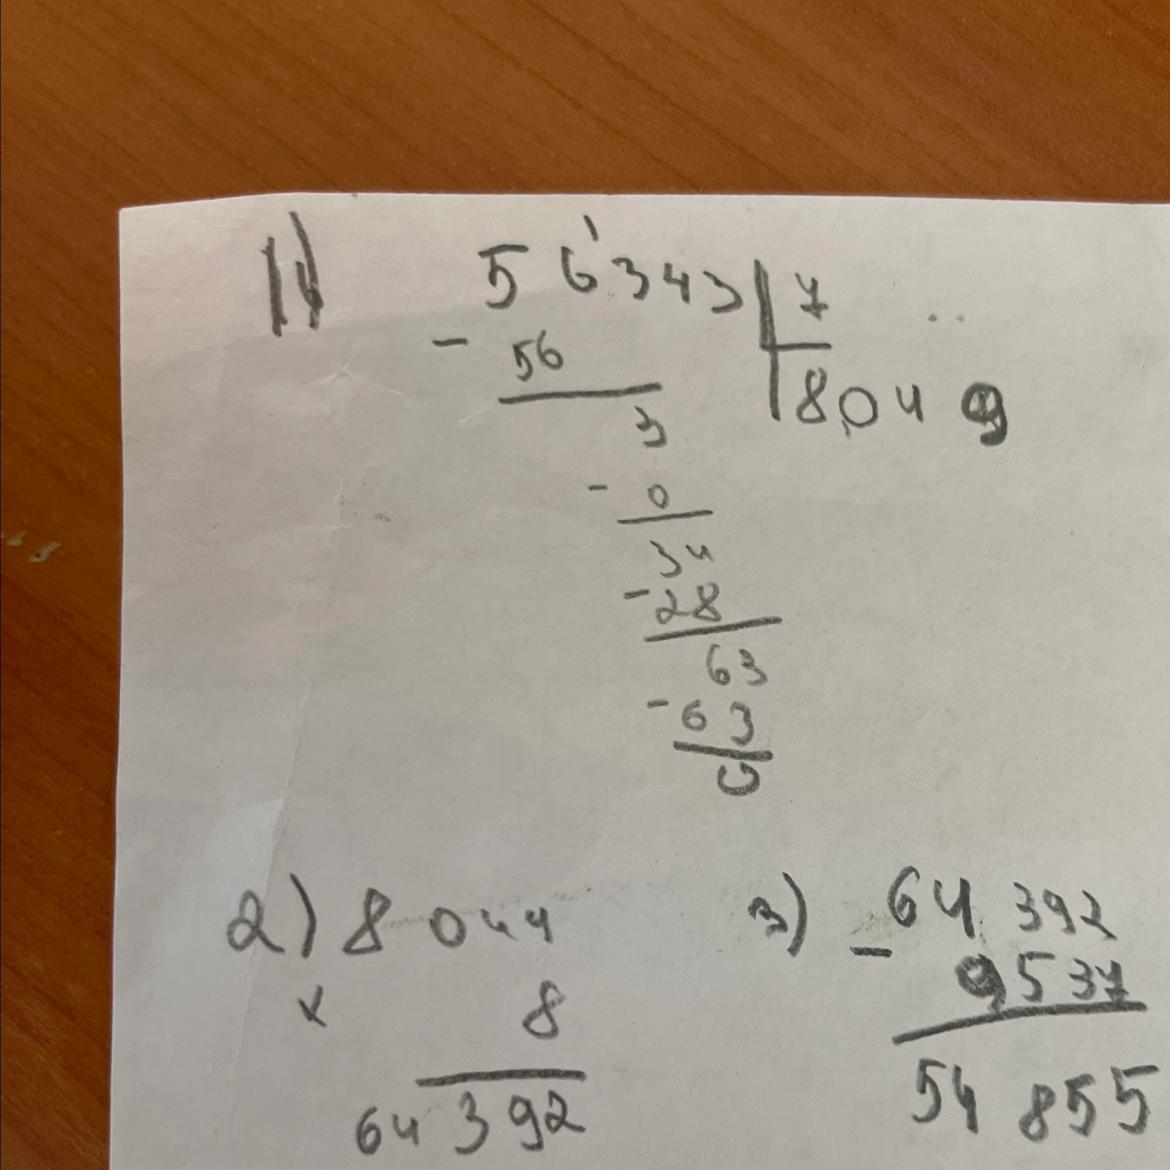 1)
56343 | 7
- 56
8049
3
- 0
34
- 28
63
- 63
0
2) 8 044
x 8
64 392
3) - 64 392
9537
54 855